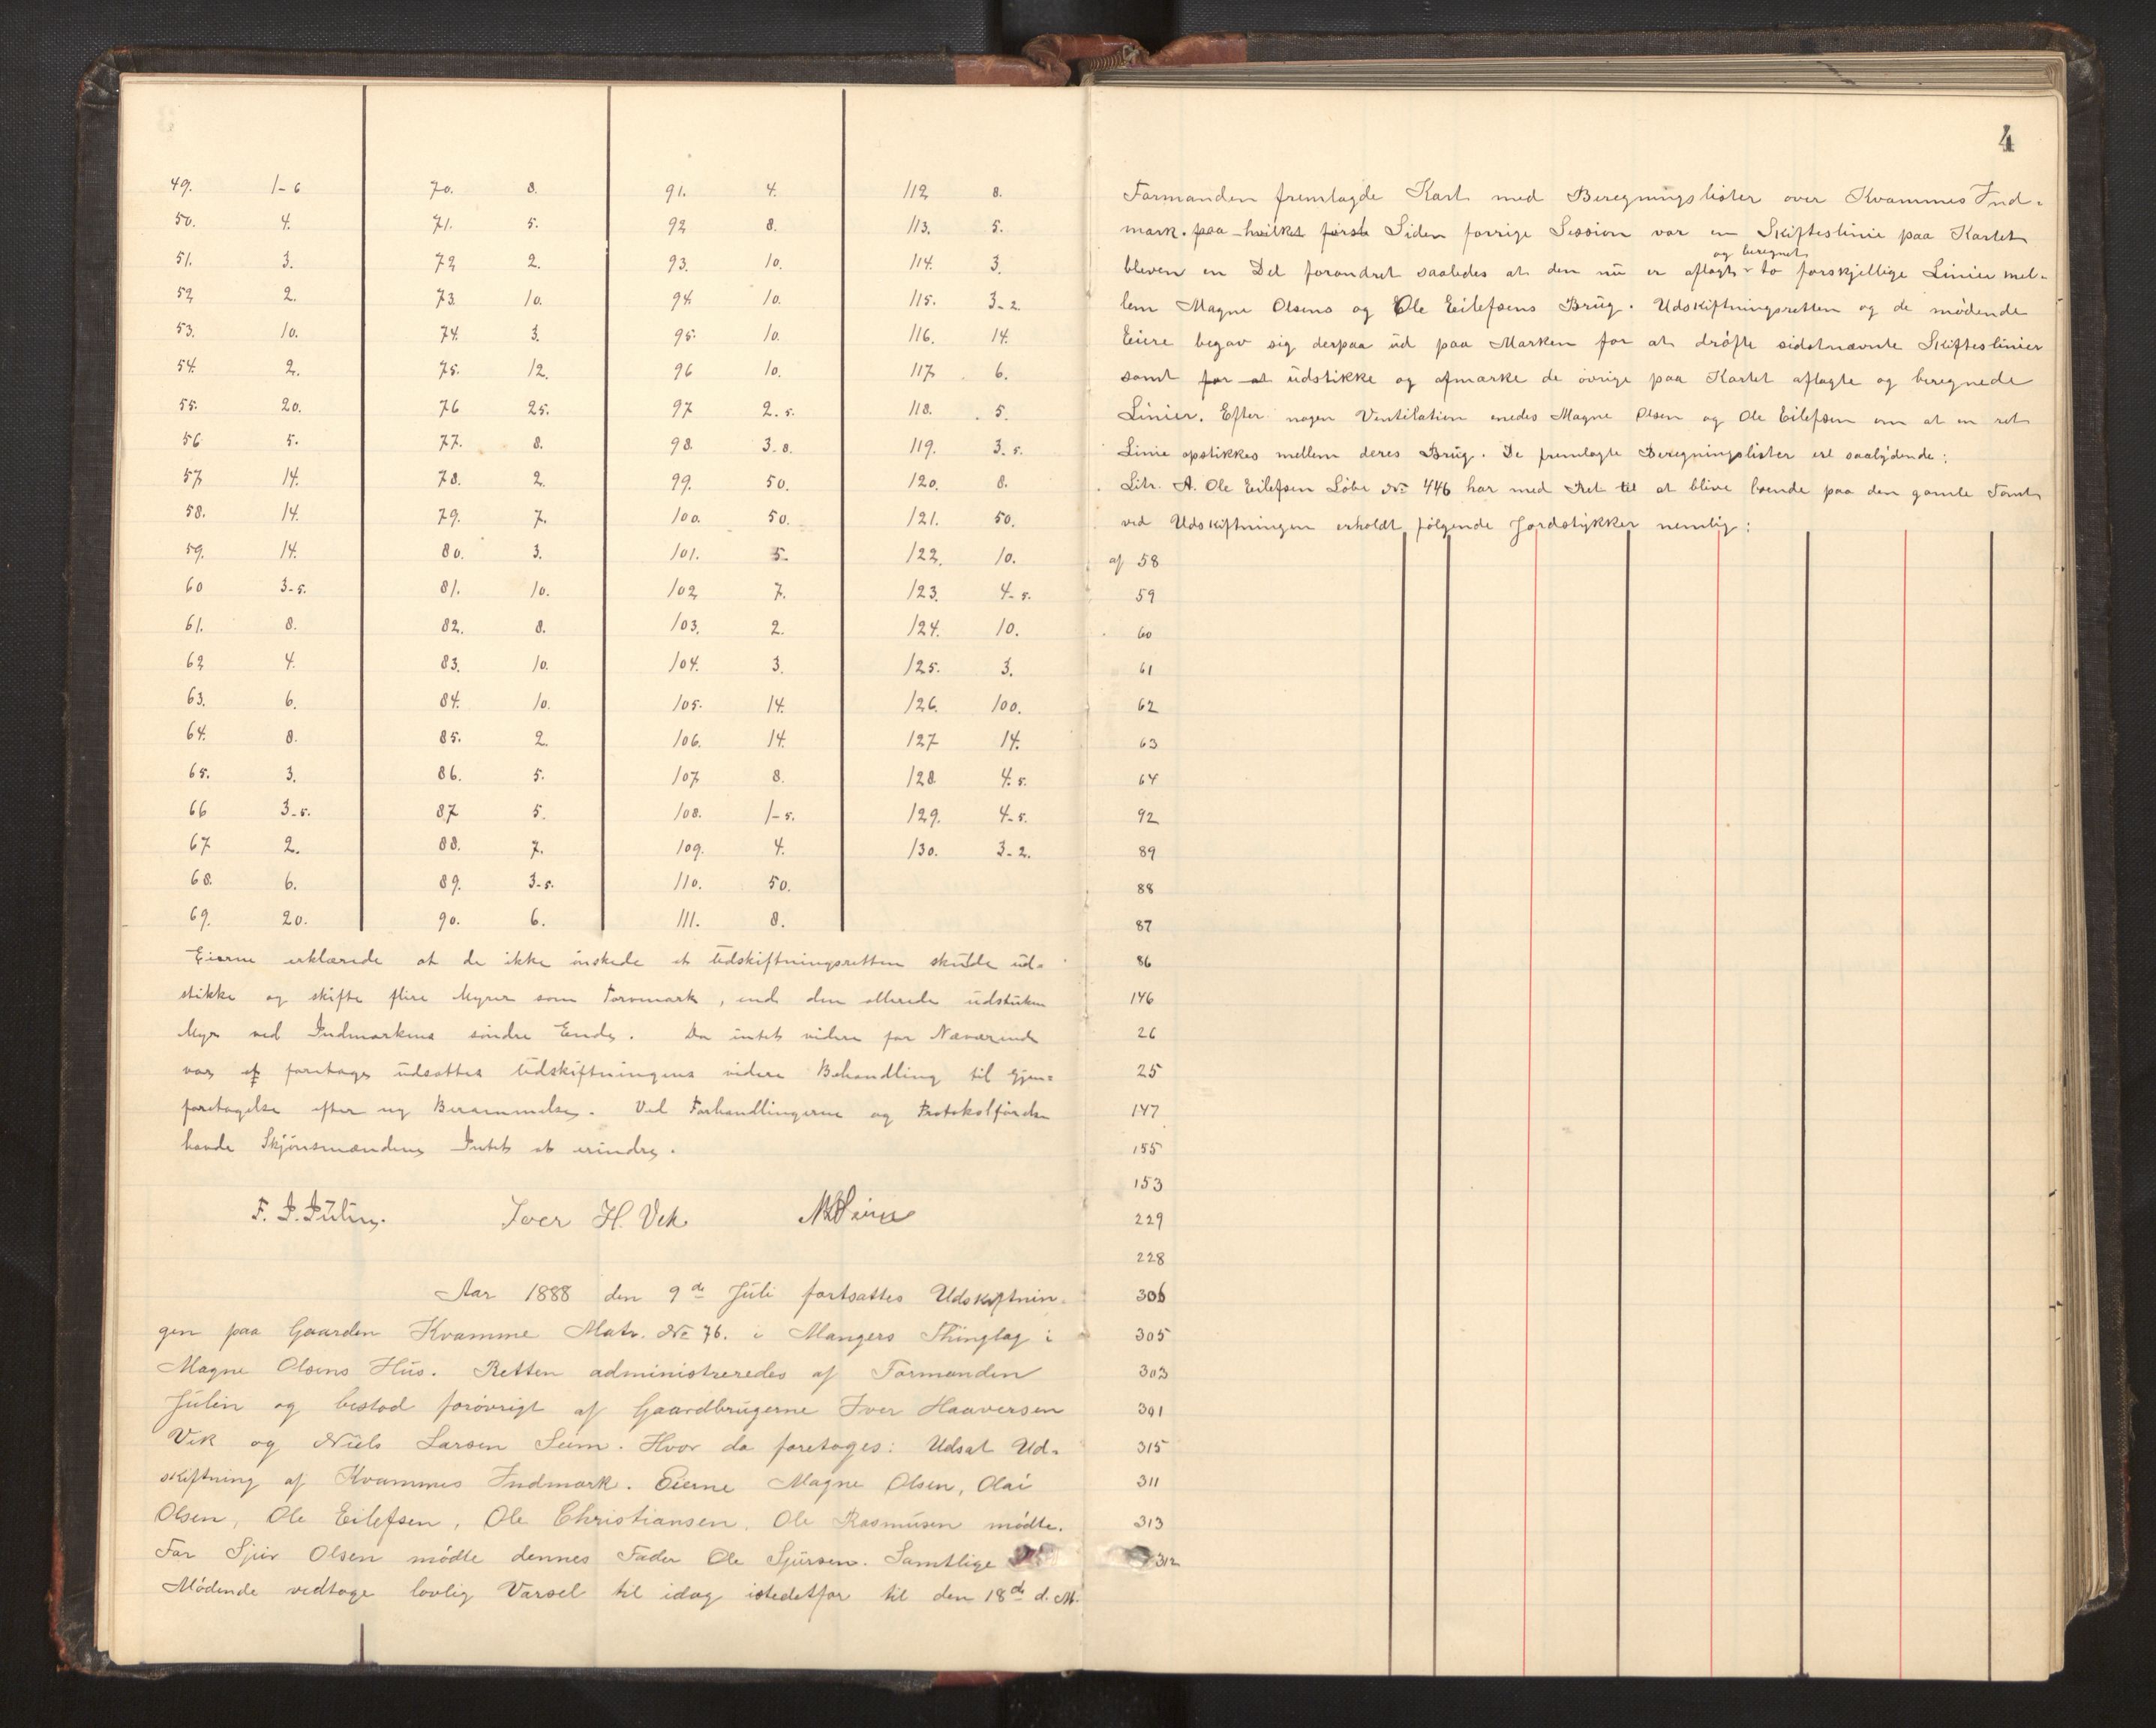 49. 1-6 70. 8. 91. 4. 112 8.
50. 4. 71. 5. 92 8. 113. 5.
51. 3. 72 2. 93. 10. 114. 3.
52 2. 73. 10. 94 10. 115. 3-2
53. 10. 74. 3. 95. 10. 116. 14.
54. 2. 75. 12. 96 10. 117 6.
55. 20. 76 25. 97 2.5. 118. 5.
56 5. 77. 8. 98. 3.8. 119. 3.5.
57 14. 78. 2. 99. 50. 120. 8.
58. 14. 79. 7. 100. 50. 121. 50.
59. 14. 80. 3. 101. 5. 122. 10.
60 3-5. 81. 10. 102 7. 123. 4-5.
61. 8. 82. 8. 103. 2. 124. 10.
62 4. 83. 10. 104. 3. 125. 3.
63. 6. 84. 10. 105. 14. 126. 100.
64. 8. 85. 2. 106. 14. 127 14.
65. 3. 86. 5. 107 8. 128 4.5.
66 3-5. 87 5. 108. 1-5. 129. 4-5.
67 2. 88. 7. 109. 4. 130. 3-2.
68. 6. 89. 3-5. 110. 50.
69. 20. 90. 6. 111. 8.
Eierne erklærede at de ikke ønskede at Udskiftningsretten skulde ud-
stikke og skifte flere Myrer som Torvmark, end den allerede udstukne
Myr ved Indmarkens søndre Ende. Da intet videre for Nærværende
var at foretage udsattes Udskiftningens videre Behandling til Gjen-
foretagelse efter ny Berammelse. Ved Forhandlingerne og Protokolførslen
havde Skjønsmændene Intet at erindre.
F. J. Julin. Iver H. Vik
Aar 1888 den 9de Juli fortsattes Udskiftnin-
gen paa Gaarden Kvamme Matr. No 76. i Mangers Thinglag i
Magne Olsens Hus. Retten administreredes af Formanden
Julin og bestod forøvrigt af Gaardbrugerne Iver Haaversen
Vik og Niels Larsen Seim. Hvor da foretoges: Udsat Ud-
skiftning af Kvammes Indmark. Eierne Magne Olsen, Olai
Olsen, Ole Eilefsen, Ole Christiansen, Ole Rasmusen mødte.
For Sjur Olsen mødte dennes Fader Ole Sjursen. Samtlige
Mødende vedtoge lovlig Varsel til idag istedetfor til den 18de d. M.
4
Formanden fremlagde Kart med Beregningslister over Kvammes Ind-
mark. paa hvilket først Siden forrige Session var en Skifteslinie paa Kartet
og beregnet
bleven en Del forandret saaledes at den nu er aflagt to forskjellige Linier mel-
lem Magne Olsens og Ole Eilefsens Brug. Udskiftningsretten og de mødende
Eiere begav sig derpaa ud paa Marken for at drøfte sidstnævnte Skifteslinier
samt for at udstikke og afmærke de øvrige paa Kartet aflagte og beregnede
Linier. Efter nogen Ventilation enedes Magne Olsen og Ole Eilefsen om at en ret
Linie opstikkes mellem deres Brug. De fremlagte Beregningslister ere saalydende:
Litr. A. Ole Eilefsen Løbe No 446 har med Ret til at blive boende paa den gamle Tomt
ved Udskiftningen erholdt følgende Jordstykker nemlig:
af 58
59
60
61
62
63
64
92
89
88
87
86
146
26
25
147
155
153
229
228
306
305
303
301
315
311
313
312